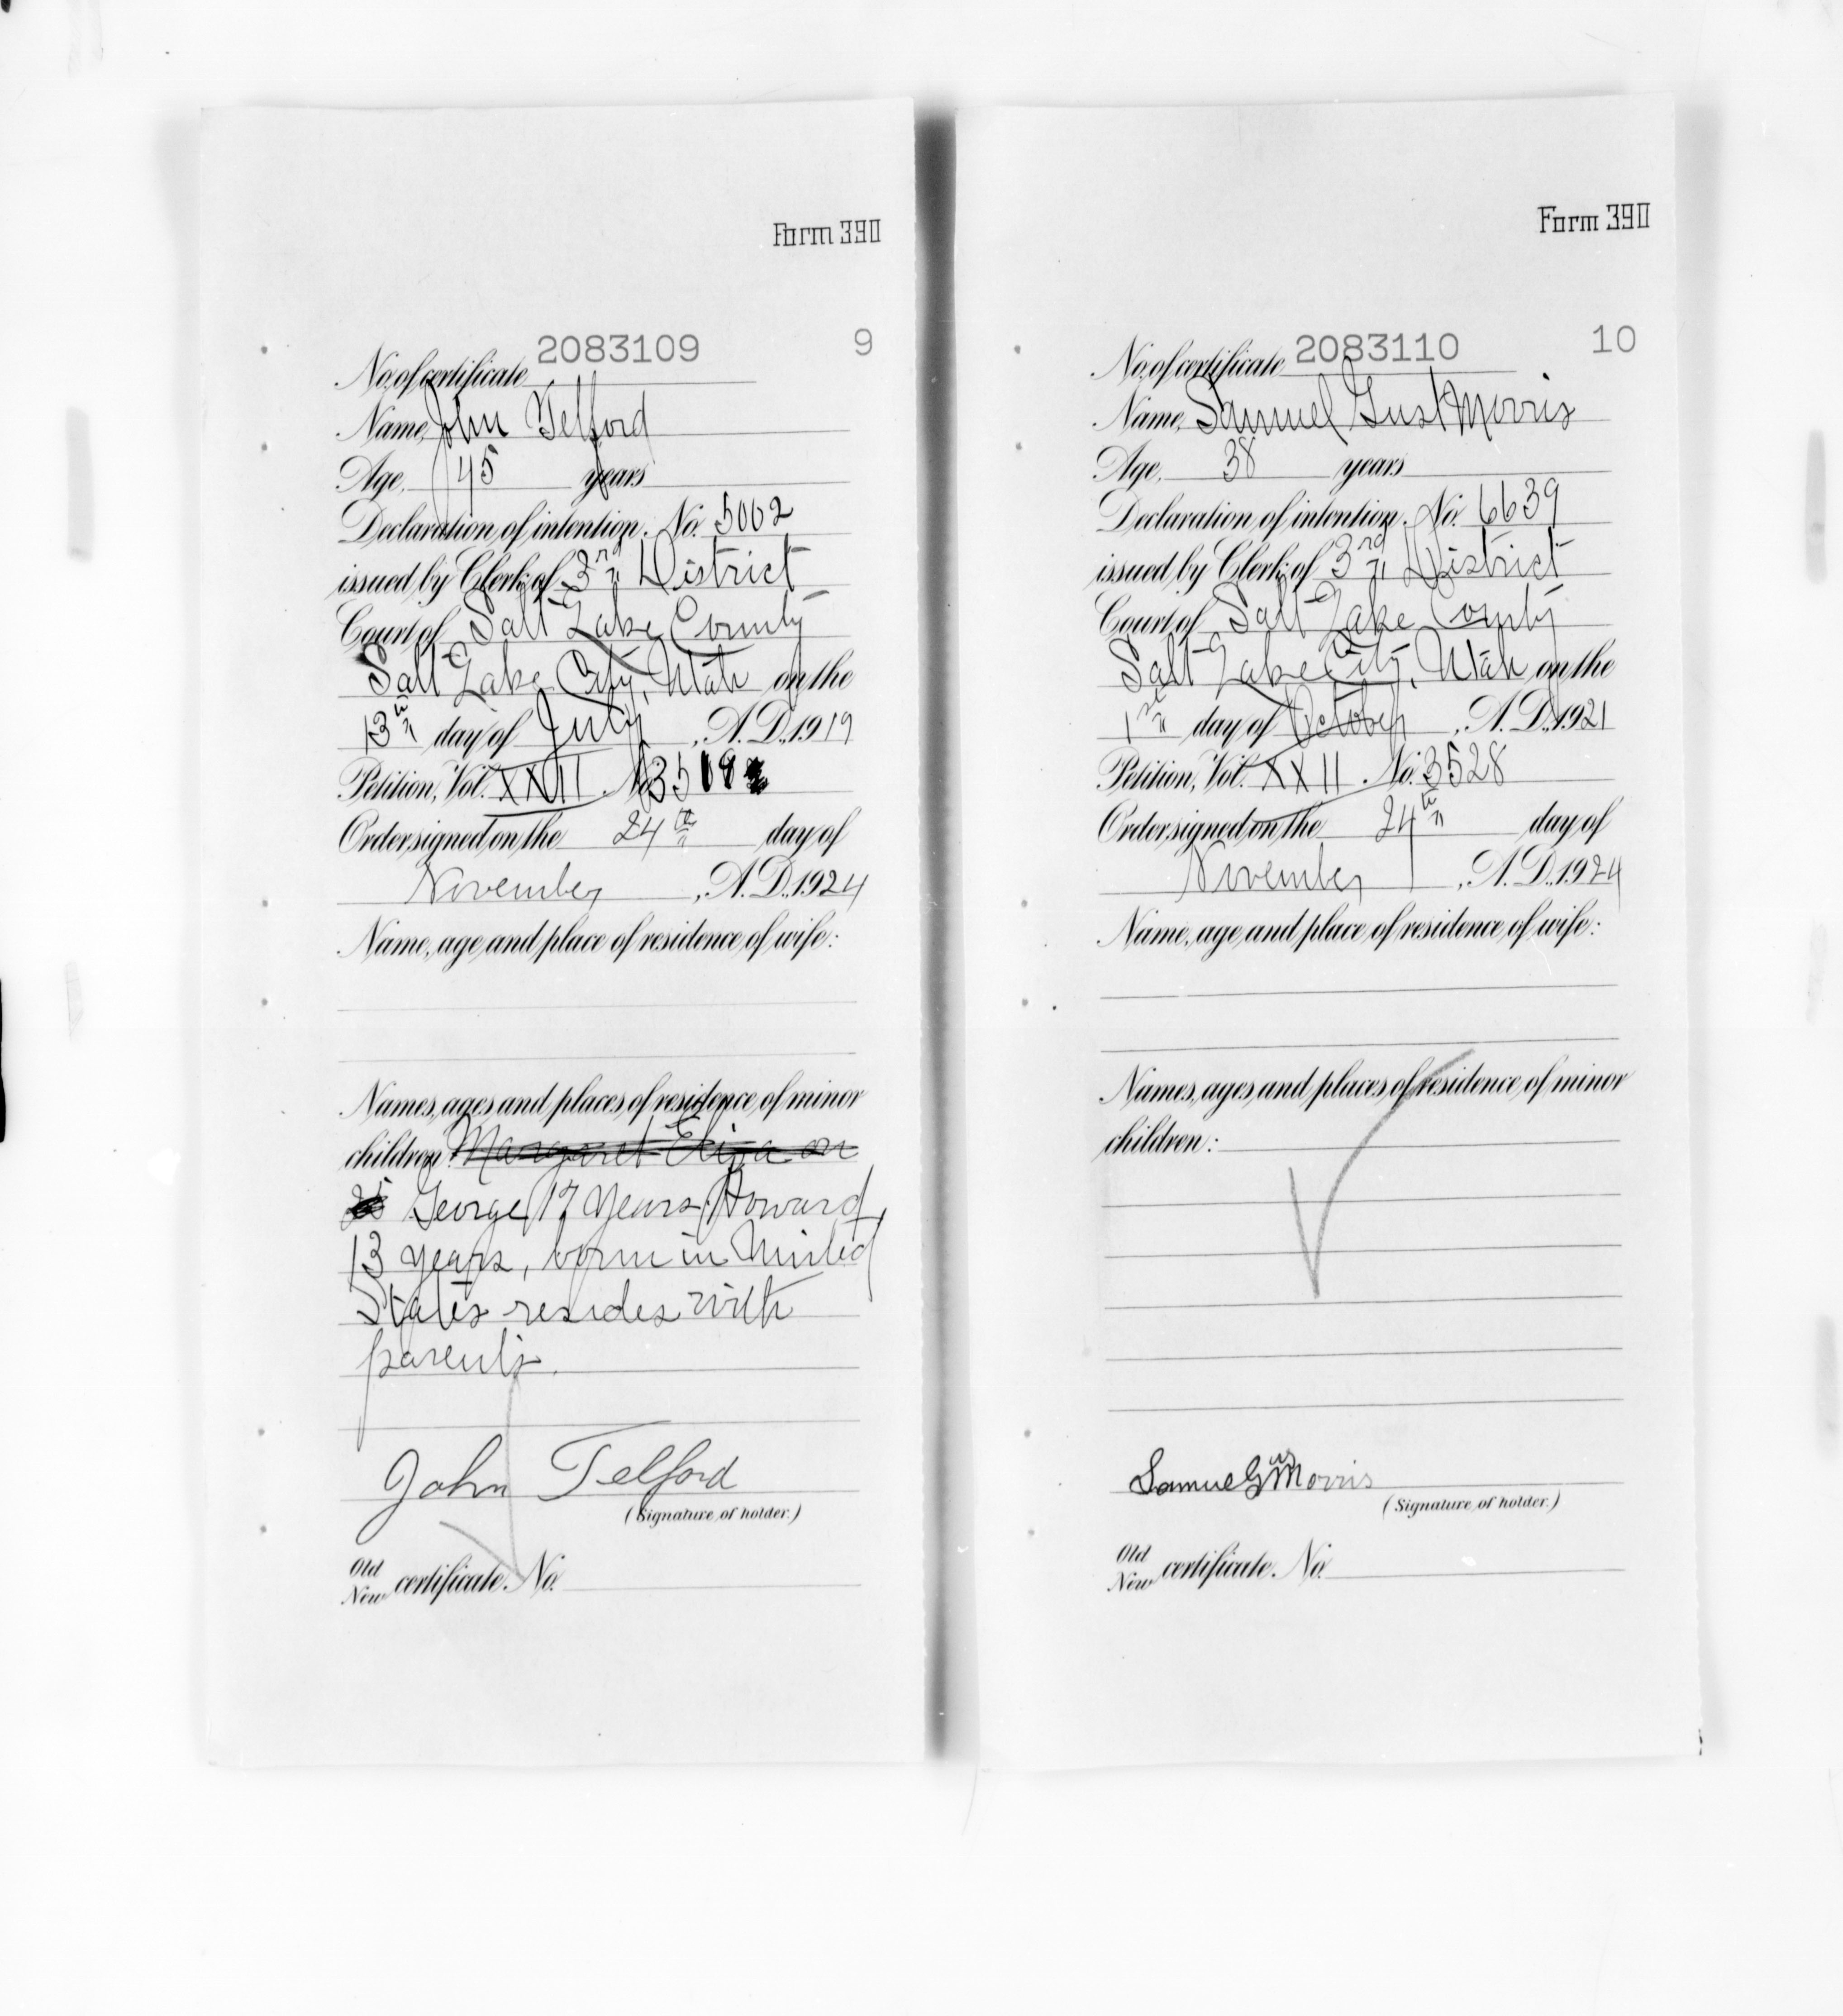 Form 390
2083109 9
No. of certificate
Name, John Telford
Age, 45 years
Declaration of intention, No. 5062
issued by Clerk of 3rd District
Court of Salt Lake County
Salt Lake City, Utah on the
13th day of July, A.D. 1919
Petition, Vol. XXII No. 3519
Order signed on the 24th day of
November, A.D. 1924
Name, age and place of residence of wife:
Names, ages and places of residence of minor
children: Margaret Eliza on
George 17 years, Howard,
13 years, born in United
States resides with
parents.
John Telford
(Signature of holder.)
Old
New certificate No.
Form 390
2083110 10
No. of certificate
Name, Samuel Gust Morris
Age, 38 years
Declaration of intention, No. 6639
issued by Clerk of 3rd District
Court of Salt Lake County
Salt Lake City, Utah on the
1st day of October, A.D. 1921
Petition, Vol. XXII No. 3528
Order signed on the 24th day of
November, A.D. 1924
Name, age and place of residence of wife:
Names, ages and places of residence of minor
children:
Samuel Gus Morris
(Signature of holder.)
Old
New certificate No.